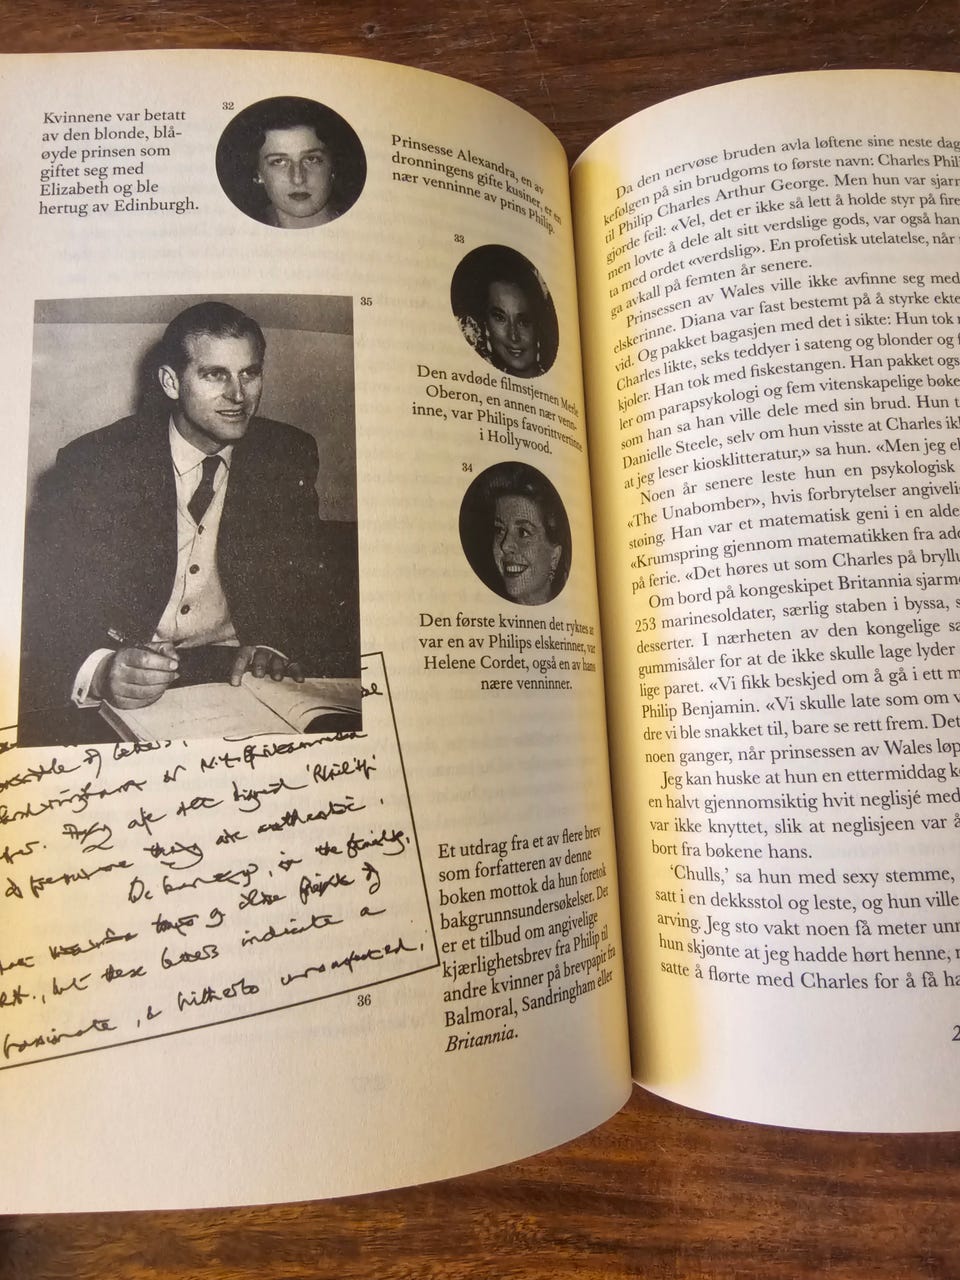 32
Kvinnene var betatt
av den blonde, blå-
øyde prinsen som
giftet seg med
Elizabeth og ble
hertug av Edinburgh.
Prinsesse Alexandra, en av
dronningens gifte kusiner, er en
nær venninne av prins Philip.
33
Den avdøde filmstjernen Merle
Oberon, en annen nær venn-
inne, var Philips favorittvertinne
i Hollywood.
34
Den første kvinnen det ryktes at
var en av Philips elskerinner, var
Helene Cordet, også en av hans
nære venninner.
35
of letters,
They are all signed 'Philip'
they are authentic.
in the family,
these letters indicate a
passionate, & hitherto unsuspected,
36
Et utdrag fra et av flere brev
som forfatteren av denne
boken mottok da hun foretok
bakgrunnsundersøkelser. Det
er et tilbud om angivelige
kjærlighetsbrev fra Philip til
andre kvinner på brevpapir fra
Balmoral, Sandringham eller
Britannia.
Da den nervøse bruden avla løftene sine neste dag
kefolgen på sin brudgoms to første navn: Charles
til Philip Charles Arthur George. Men hun var
gjorde feil: «Vel, det er ikke så lett å holde styr på fire
men lovte å dele alt sitt verdslige gods, var også han
ta med ordet «verdslig». En profetisk utelatelse, når
ga avkall på femten år senere.
Prinsessen av Wales ville ikke avfinne seg med
elskerinne. Diana var fast bestemt på å styrke
vid. Og pakket bagasjen med det i sikte: Hun tok
Charles likte, seks teddyer i sateng og blonder og
kjoler. Han tok med fiskestangen. Han pakket
ler om parapsykologi og fem vitenskapelige
som han sa han ville dele med sin brud. Hun
Danielle Steele, selv om hun visste at Charles
at jeg leser kiosklitteratur,» sa hun. «Men jeg
Noen år senere leste hun en psykologisk
«The Unabomber», hvis forbrytelser
støing. Han var et matematisk geni i en
«Krumspring gjennom matematikken fra
på ferie. «Det høres ut som Charles på
Om bord på kongeskipet Britannia
253 marinesoldater, særlig staben i byssa,
desserter. I nærheten av den kongelige
gummisåler for at de ikke skulle lage lyder
lige paret. «Vi fikk beskjed om å gå i ett
Philip Benjamin. «Vi skulle late som om
dre vi ble snakket til, bare se rett frem. Det
noen ganger, når prinsessen av Wales
Jeg kan huske at hun en ettermiddag
en halvt gjennomsiktig hvit neglisjé med
var ikke knyttet, slik at neglisjeen var
bort fra bøkene hans.
'Chulls,' sa hun med sexy stemme,
satt i en dekksstol og leste, og hun ville
arving. Jeg sto vakt noen få meter
hun skjønte at jeg hadde hørt henne,
satte å flørte med Charles for å få
2